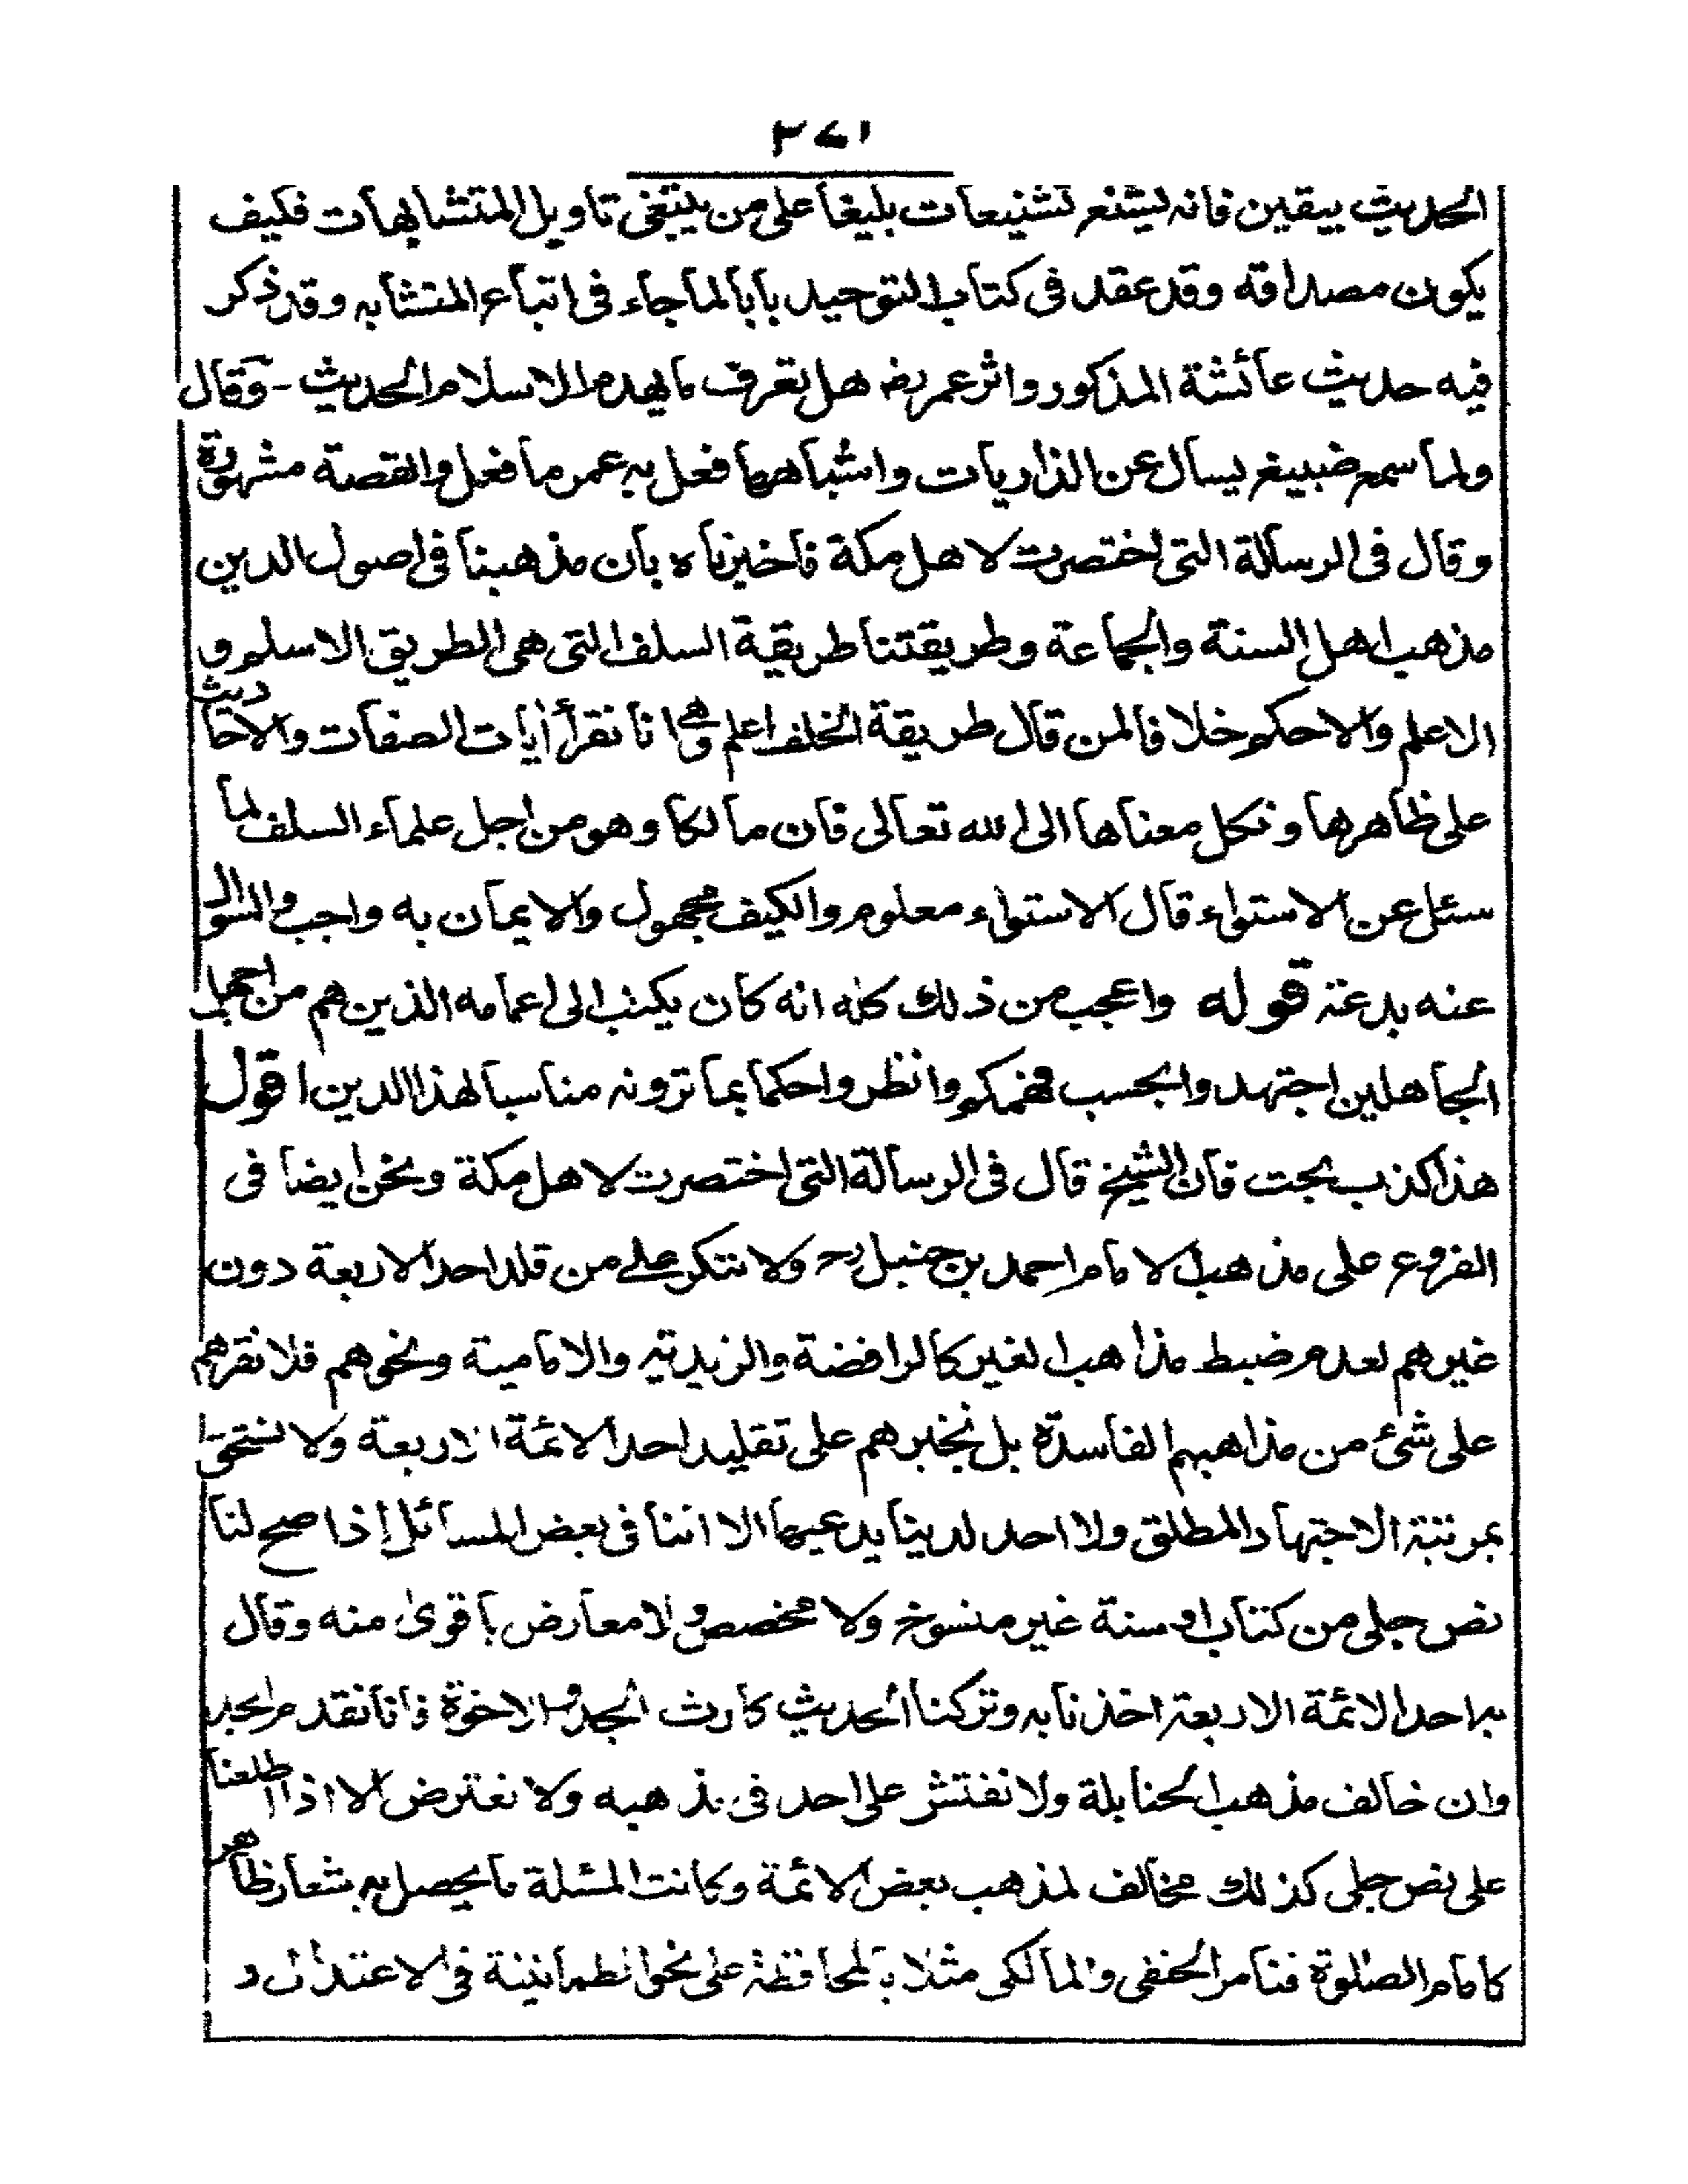 ٣٧١
الحديث بيقين فانه يشنع تشنيعات بليغا على من يبتغى تاويل المتشابهات فكيف
يكون مصداقه وقد عقد فى كتاب التوحيد بابا لما جاء فى اتباع المتشابه وقد ذكر
فيه حديث عائشة المذكور واثر عمر رض هل تعرف ما يهدم الاسلام الحديث - وقال
ولما سمع ضبيغ يسال عن الذاريات واشباهها فعل به عمر ما فعل والقصة مشهورة
وقال فى الرسالة التى اختصرت لاهل مكة فاخبرناه بان مذهبنا فى اصول الدين
مذهب اهل السنة والجماعة وطريقتنا طريقة السلف التى هى الطريق الاسلم و
الاعلم والاحكم خلافا لمن قال طريقة الخلف اعلم وهى انا نقرأ آيات الصفات والاحاديث
على ظاهرها ونكل معناها الى الله تعالى فان مالكا وهو من اجل علماء السلف لما
سئل عن الاستواء قال الاستواء معلوم والكيف مجهول والايمان به واجب والسوال
عنه بدعة قوله واعجب من ذلك كله انه كان يكتب الى اعماله الذين هم من اجهل
الجاهلين اجتهدوا بحسب فهمكم وانظروا حكما بما ترونه مناسبا لهذا الدين اقول
هذا كذب بحت فان الشيخ قال فى الرسالة التى اختصرت لاهل مكة ونحن ايضا فى
الفروع على مذهب الامام احمد بن حنبل رح ولا ننكر على من قلد احد الاربعة دون
غيرهم لعدم ضبط مذاهب الغير كالرافضة والزيدية والامامية ونحوهم فلا نقرهم
على شئ من مذاهبهم الفاسدة بل نجبرهم على تقليد احد الائمة الاربعة ولا نستحق
بمرتبة الاجتهاد المطلق ولا احد لدينا يدعيها الا اننا فى بعض المسائل إذا صح لنا
نص جلى من كتاب او سنة غير منسوخ ولا مخصص ولا معارض باقوى منه وقال
به احد الائمة الاربعة اخذنا به وتركنا الحديث كارث الجد والاخوة فانا نقدم الجد
وان خالف مذهب الحنابلة ولا نفتش على احد فى مذهبه ولا نعترض الا اذا اطلعنا
على نص جلى كذلك مخالف لمذهب بعض الائمة وكانت المسئلة ما يحصل به شعار ظاهر
كامام الصلوة فنامر الحنفى والمالكى مثلا بالمحافظة على نحو الطمانينة فى الاعتدال و